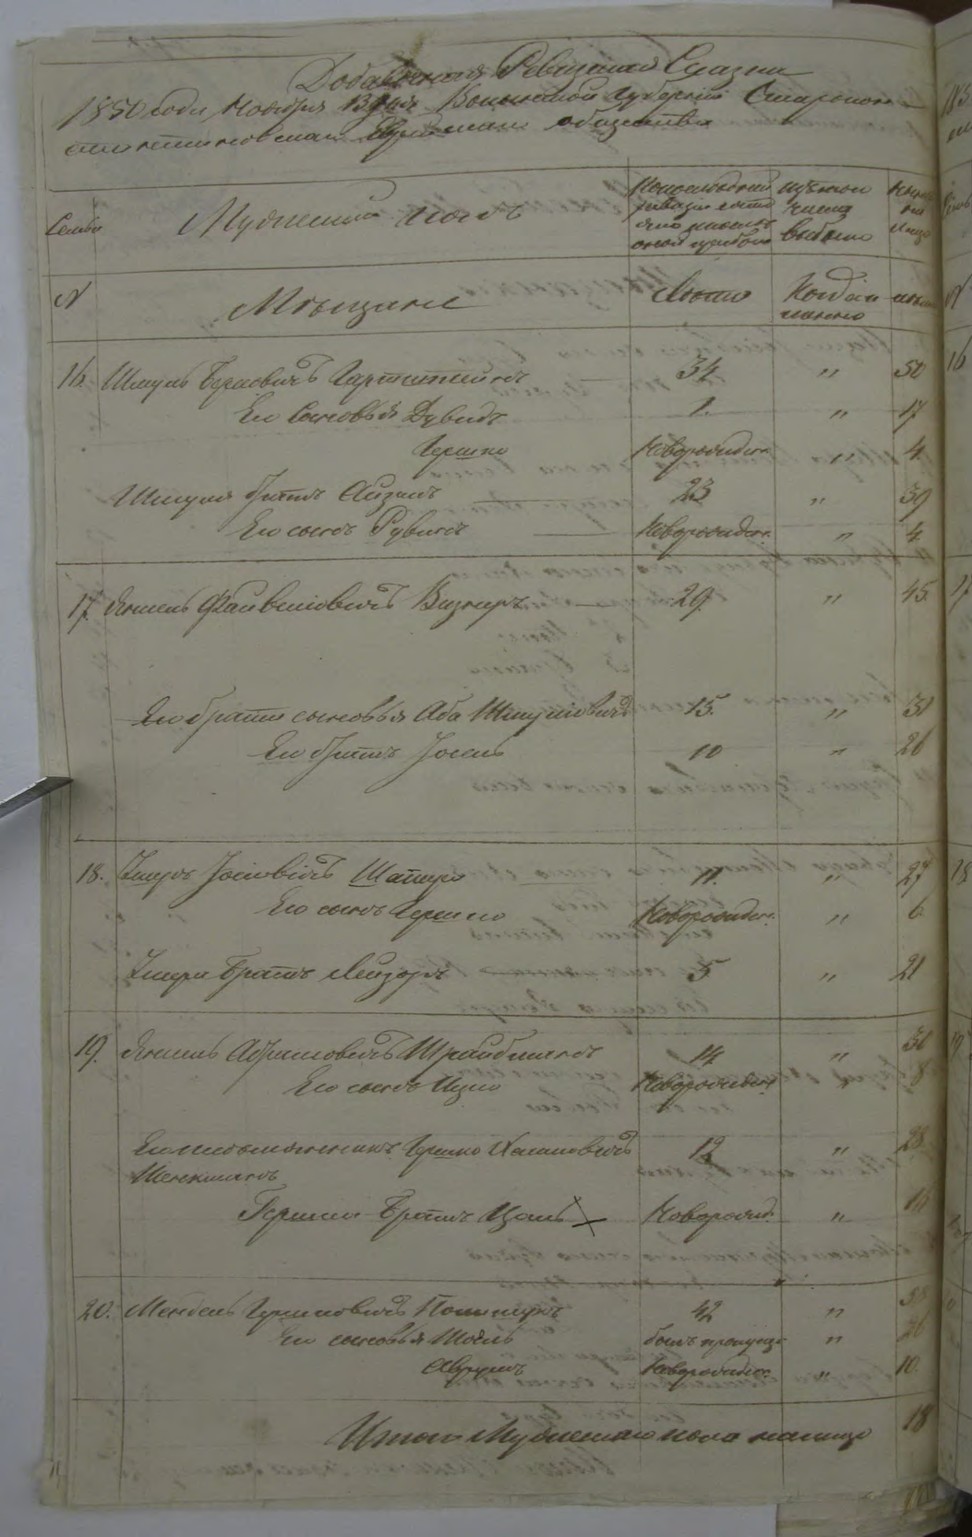 Добавочная Ревизская Сказка
1850 года Ноября 13 дня Волынской Губернии Староконс-
тантиновскаго Еврейскаго общества
Семьи Мужеский полъ По последней ревизіи состояло изъ того числа выбыло Ныне на лицо
№ Мещане Лета Когда именно лета
16. Шмуль Берковичъ Гартштейнъ 34 " 50
Его Сыновья Дувидъ 1. " 17
Гершко Новорожден. " 4
Шмуля братъ Айзикъ 23 " 39
Его сынъ Рувинъ Новорожден. " 4
17. Янкель Файвишовичъ Визнеръ 29 " 45
Его брата сыновья Аба Шмуліовичъ 15. " 31
Его братъ Іосель 10 " 26
18. Іосіовичъ Шапиро 11. " 27
Его сынъ Гершко Новорожден. " 6
братъ Лейзоръ 5 " 21
19. Янкель Абрамовичъ Шрайбманъ 14 " 30
Его сынъ Ицко Новорожден. " 8
Его племянникъ Гершко Хаимовичъ 12 " 28
Шенкманъ
Гершка братъ Новорожд. "
20. Мендель Гершковичъ 42 " 58
Его сыновья былъ пропущ. " 26
Аврумъ Новорожден. " 10
Итого Мужескаго пола налицо 18